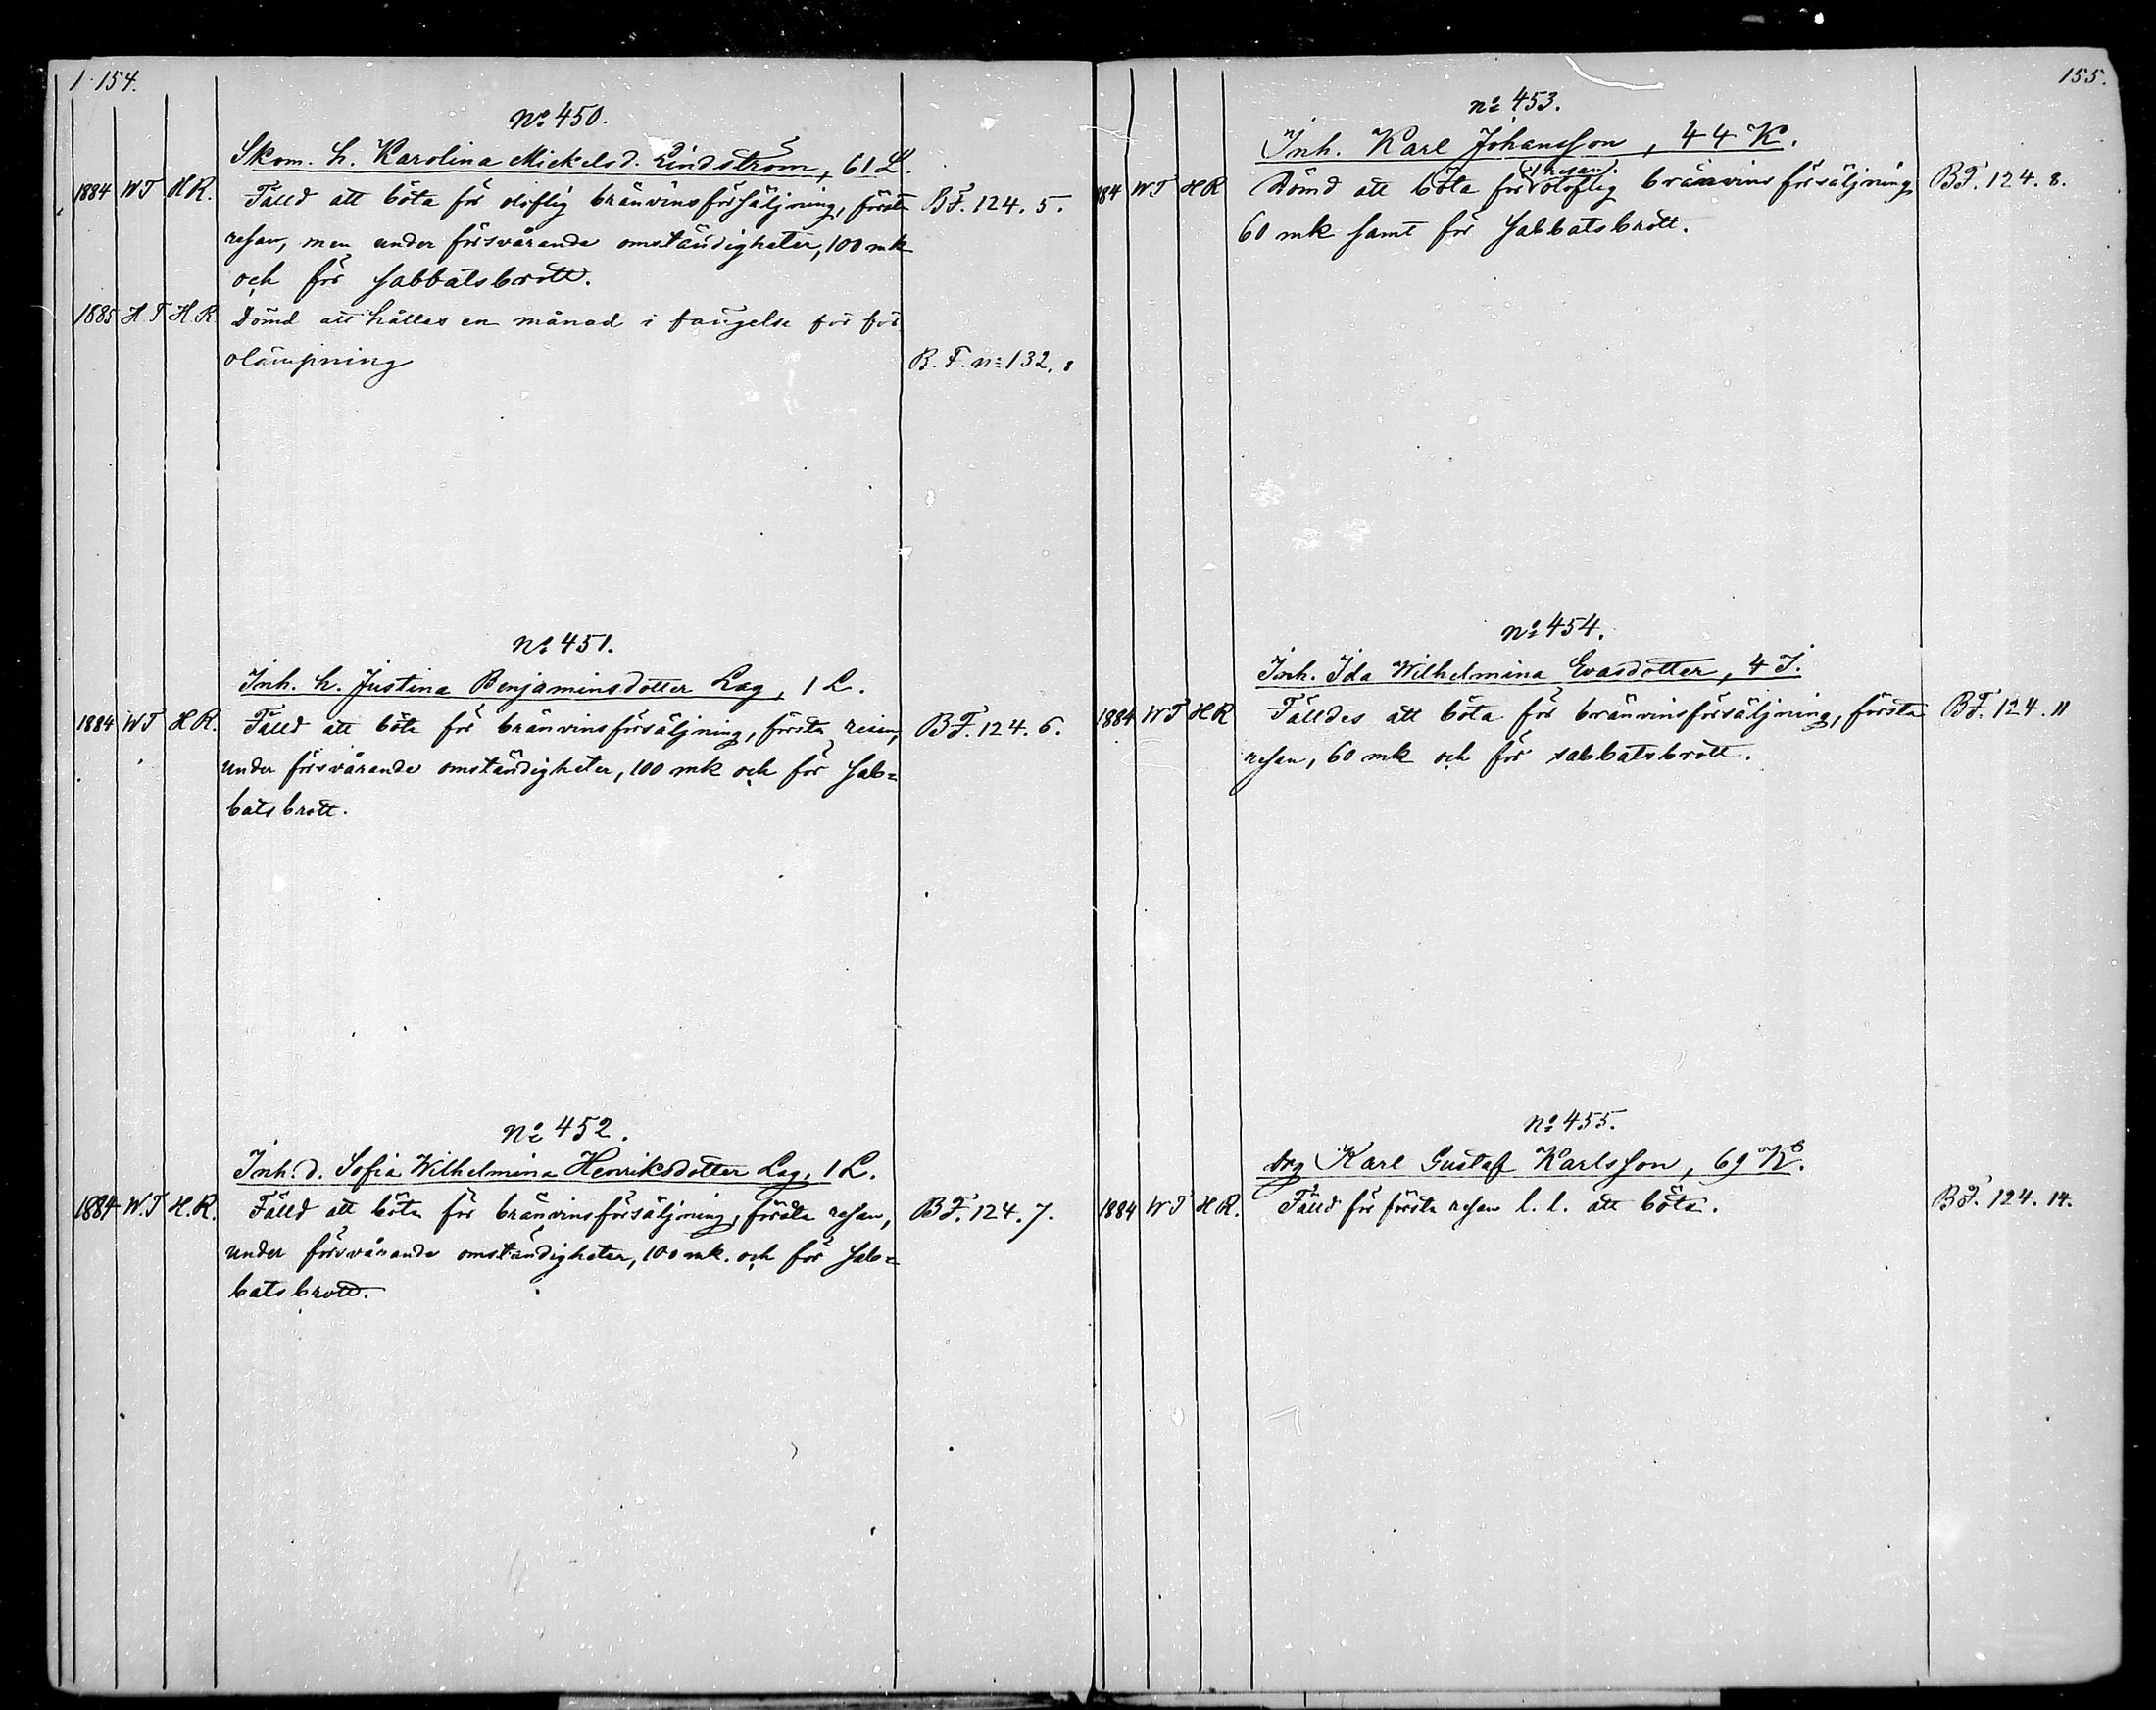 154.
No 450.
Skom. h. Karolina Mickelsd. Lindström, 61 L.
1884 WT HR. Fälld att böta för oloflig bränvinsförsäljning, första BF. 124. 5.
resan, men under försvårande omständigheter, 100 mk
och för sabbatsbrott.
1885 HT HR Dömd att hållas en månad i fängelse för för
olämpning B. F. no 132. 8
No 451.
Inh. h. Justina Benjaminsdotter Lag, 1 L.
1884 WT HR. Fälld att böta för bränvinsförsäljning, första resan, BF. 124. 6.
under försvårande omständigheter, 100 mk och för sab=
batsbrott.
No 452.
Inh. d. Sofia Wilhelmina Henriksdotter Lag, 1 L.
1884 W.T H.R. Fälld att böta för bränvinsförsäljning, första resan, BF. 124. 7.
under försvårande omständigheter, 100 mk. och för sab=
batsbrott.
155.
No 453.
Inh. Karl Johansson, 44 K.
1 resan
184 WT HR Dömd att böta för oloflig bränvinsförsäljning BF. 124. 8.
60 mk samt för sabbatsbrott.
No 454.
Inh. Ida Wilhelmina Evasdotter, 4 I.
1884 WT HR Fälldes att böta för bränvinsförsäljning, första BF. 124. 11
resan, 60 mk och för sabbatsbrott.
No 455.
drg Karl Gustaf Karlsson, 69 K.
1884 WT HR. Fälld för första resan l. l. att böta. BF. 124. 14.